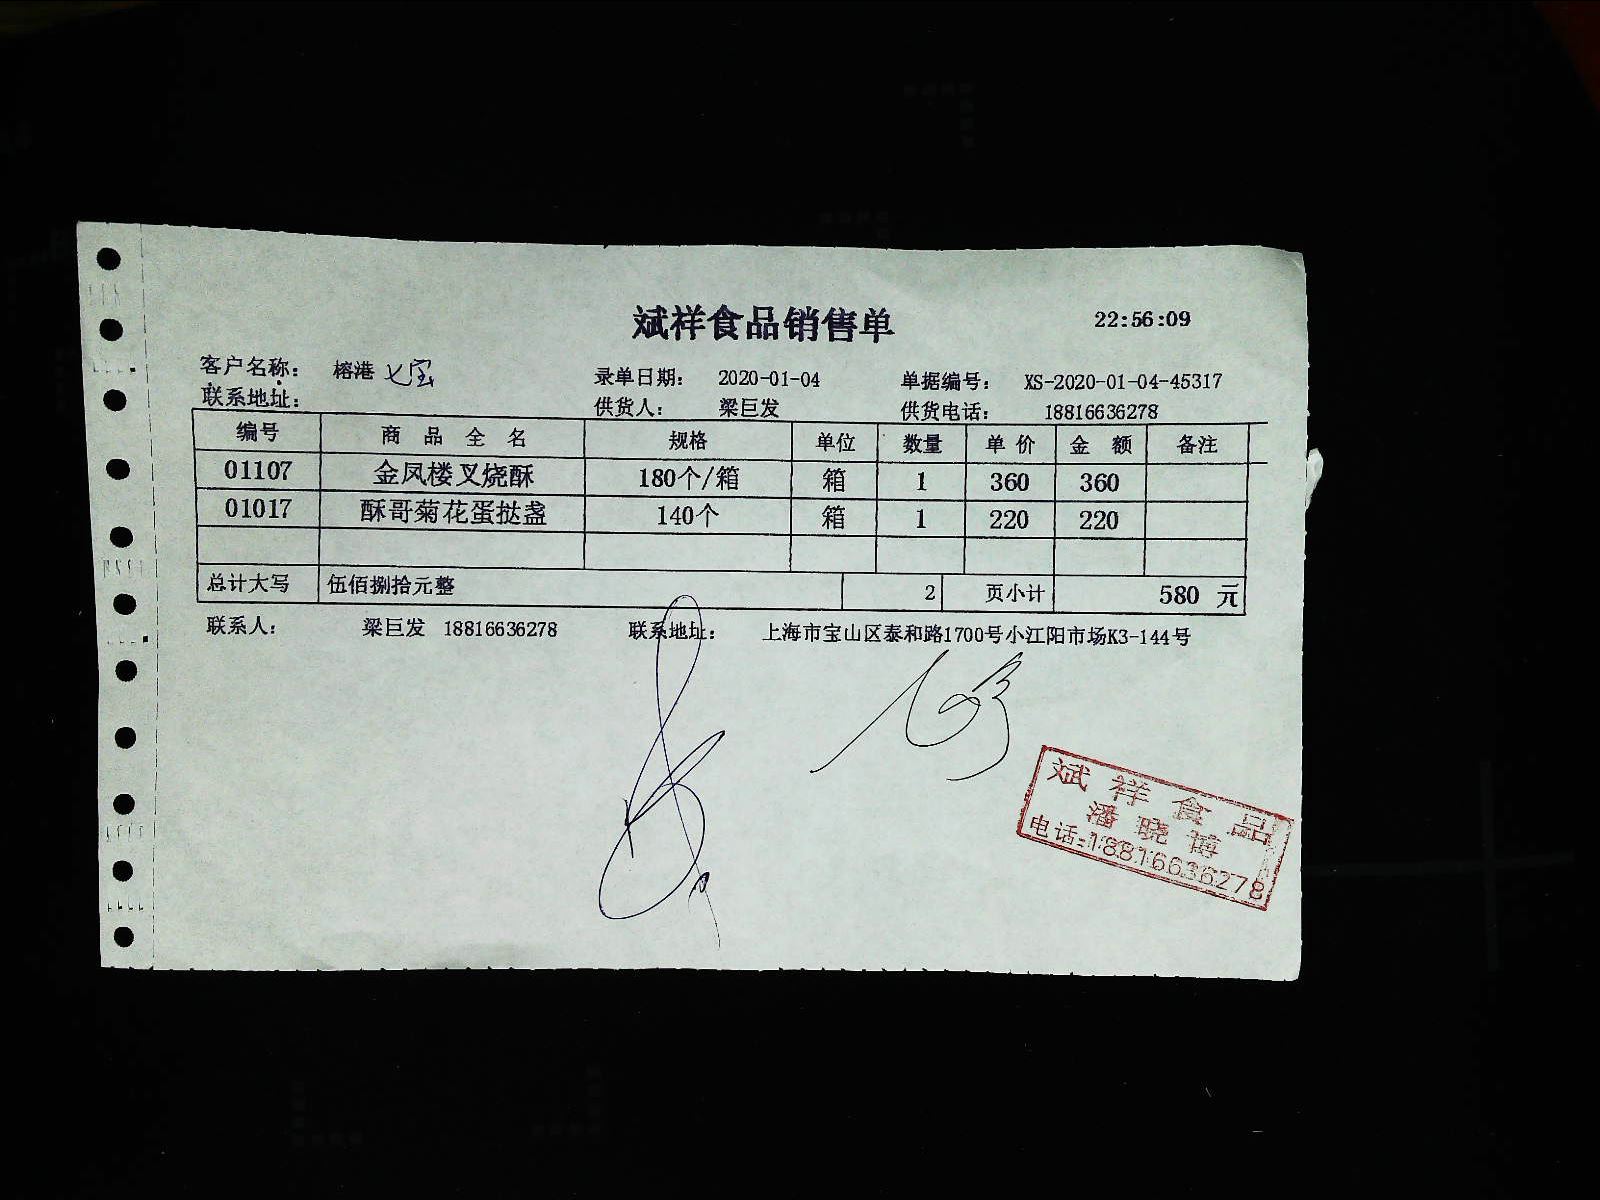 斌祥食品销售单 22:56:09
客户名称： 榕港 七宝 录单日期： 2020-01-04 单据编号： XS-2020-01-04-45317
联系地址： 供货人： 梁巨发 供货电话： 18816636278
编号 商品全名 规格 单位 数量 单价 金额 备注
01107 金凤楼叉烧酥 180个/箱 箱 1 360 360
01017 酥哥菊花蛋挞盏 140个 箱 1 220 220
总计大写 伍佰捌拾元整 2 页小计 580 元
联系人： 梁巨发 18816636278 联系地址： 上海市宝山区泰和路1700号小江阳市场K3-144号
斌祥食品
潘晓博
电话:18816636278